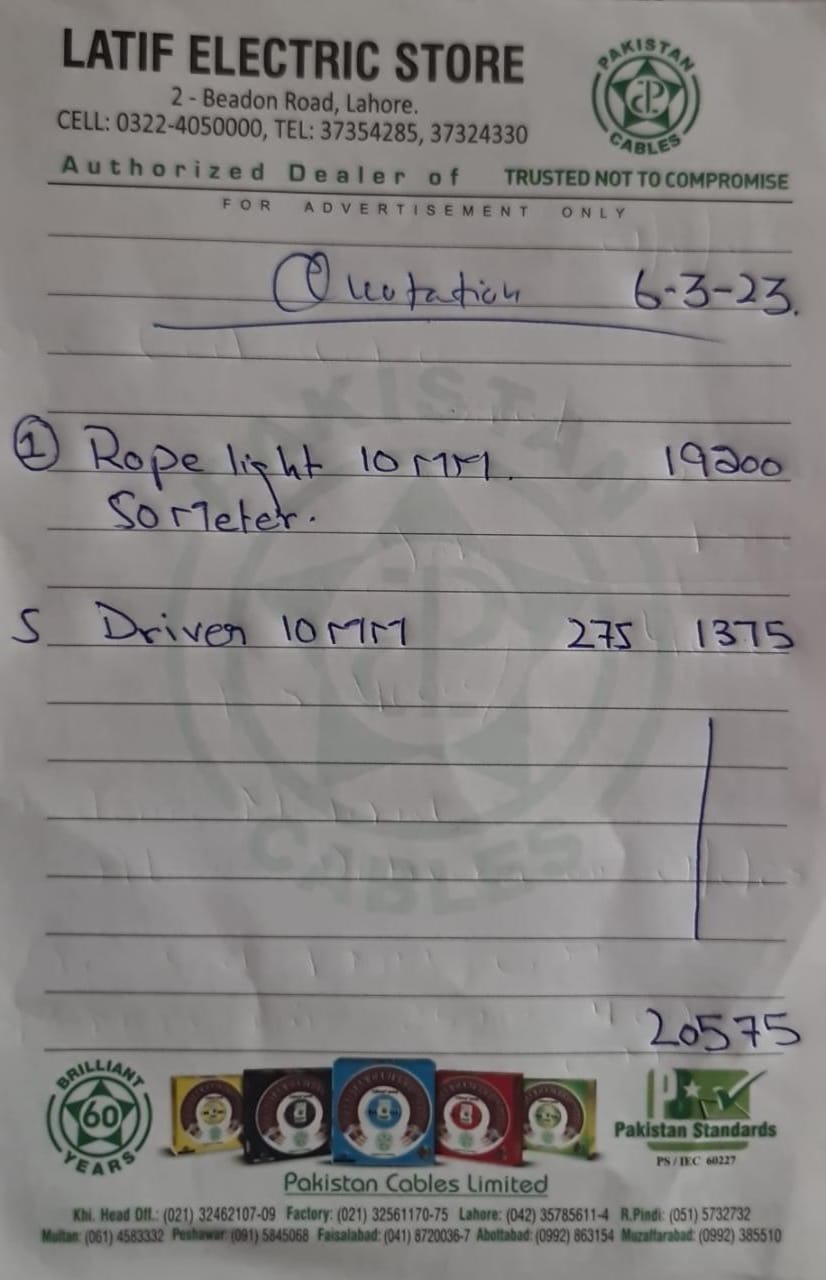 LATIF ELECTRIC STORE
2 - Beadon Road, Lahore.
CELL: 0322-4050000, TEL: 37354285, 37324330
PAKISTAN
CABLES
Authorized Dealer of TRUSTED NOT TO COMPROMISE
FOR ADVERTISEMENT ONLY
Quotation 6-3-23.
1 Rope light 10 MM. 19200
50 Meter.
5 Driver 10 MM 275 1375
PAKISTAN
CABLES
20575
BRILLIANT
60
YEARS
Pakistan Standards
PS / IEC 60227
Pakistan Cables Limited
Khi. Head Off.: (021) 32462107-09 Factory: (021) 32561170-75 Lahore: (042) 35785611-4 R.Pindi: (051) 5732732
Multan: (061) 4583332 Peshawar: (091) 5845068 Faisalabad: (041) 8720036-7 Abottabad: (0992) 863154 Muzaffarabad: (0992) 385510